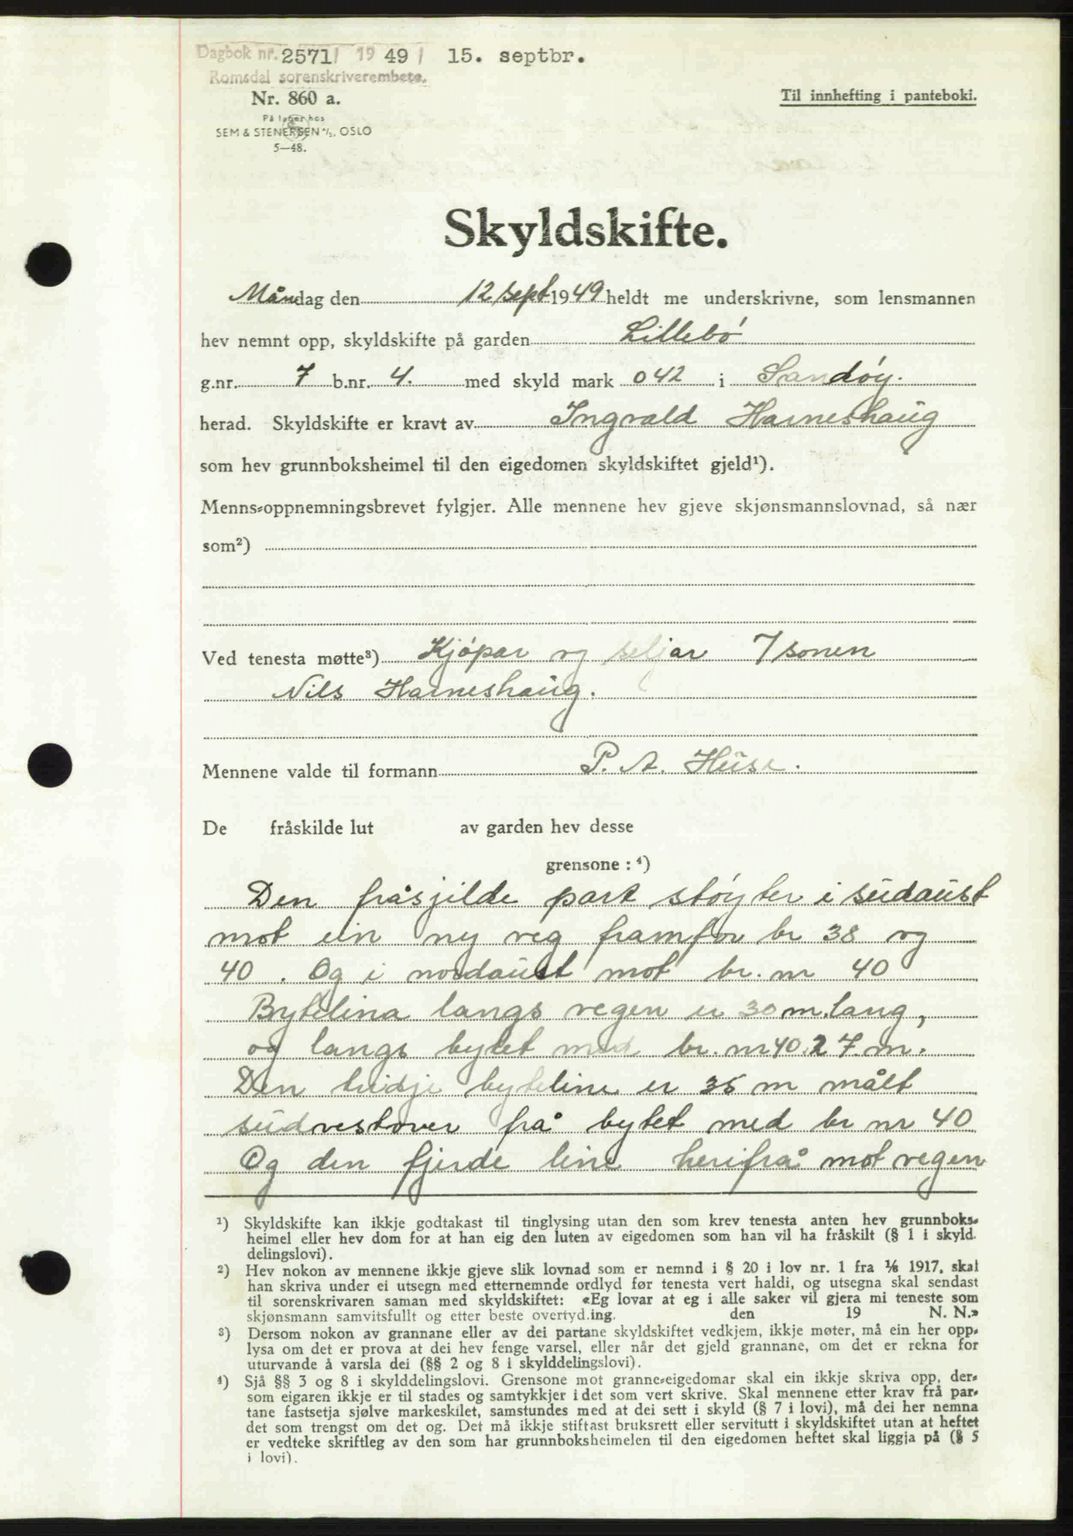 Dagbok nr. 2571/ 1949/ 15. septbr.
Romsdal sorenskriverembete.
Nr. 860 a.
Til innhefting i panteboki.
På lager hos
SEM & STENERSEN A/S, OSLO
5—48.
Skyldskifte.
Måndag den 12 sept. 1949 heldt me underskrivne, som lensmannen
hev nemnt opp, skyldskifte på garden Lillebó
g.nr. 7 b.nr. 4. med skyld mark 042 i Sandóy.
herad. Skyldskifte er kravt av Ingvald Harneshaug
som hev grunnboksheimel til den eigedomen skyldskiftet gjeld¹).
Menns-oppnemningsbrevet fylgjer. Alle mennene hev gjeve skjønsmannslovnad, så nær
som²)
Ved tenesta møtte³) Kjópar og seljar 7 sonen
Nils Harneshaug.
Mennene valde til formann P. A. Huse.
De fråskilde lut av garden hev desse
grensone: ⁴)
Den fråsjilde part stóyter i südaust
mot ein ny veg framfor br 38 og
40. Og i nordaust mot br. nr 40
Bytelina langs vegen er 30 m. lang,
og langs bytet med br. nr 40. 27 m.
Den tridje byteline er 35 m målt
südvestover frå bytet med br nr 40
Og den fjerde line herifrå mot vegen
¹) Skyldskifte kan ikkje godtakast til tinglysing utan den som krev tenesta anten hev grunnboks-
heimel eller hev dom for at han eig den luten av eigedomen som han vil ha fråskilt (§ 1 i skyld-
delingslovi).
²) Hev nokon av mennene ikkje gjeve slik lovnad som er nemnd i § 20 i lov nr. 1 fra 1/6 1917, skal
han skriva under ei utsegn med etternemnde ordlyd før tenesta vert haldi, og utsegna skal sendast
til sorenskrivaren saman med skyldskiftet: «Eg lovar at eg i alle saker vil gjera mi teneste som
skjønsmann samvitsfullt og etter beste overtyding. den 19 N. N.»
³) Dersom nokon av grannane eller av dei partane skyldskiftet vedkjem, ikkje møter, må ein her opp-
lysa om det er prova at dei hev fenge varsel, eller når det gjeld grannane, om det er rekna for
uturvande å varsla dei (§§ 2 og 8 i skylddelingslovi).
⁴) Sjå §§ 3 og 8 i skylddelingslovi. Grensone mot granne-eigedomar skal ein ikkje skriva opp, der-
som eigaren ikkje er til stades og samtykkjer i det som vert skrive. Skal mennene etter krav frå par-
tane fastsetja sjølve markeskilet, samstundes med at dei sett i skyld (§ 7 i lovi), må dei her nemna
det som trengst om det og. Det må ikkje stiftast bruksrett eller servitutt i skyldskiftet utan at heftet
er vedteke skriftleg av den som har grunnboksheimelen til den eigedomen heftet skal liggja på (§ 5
i lovi).